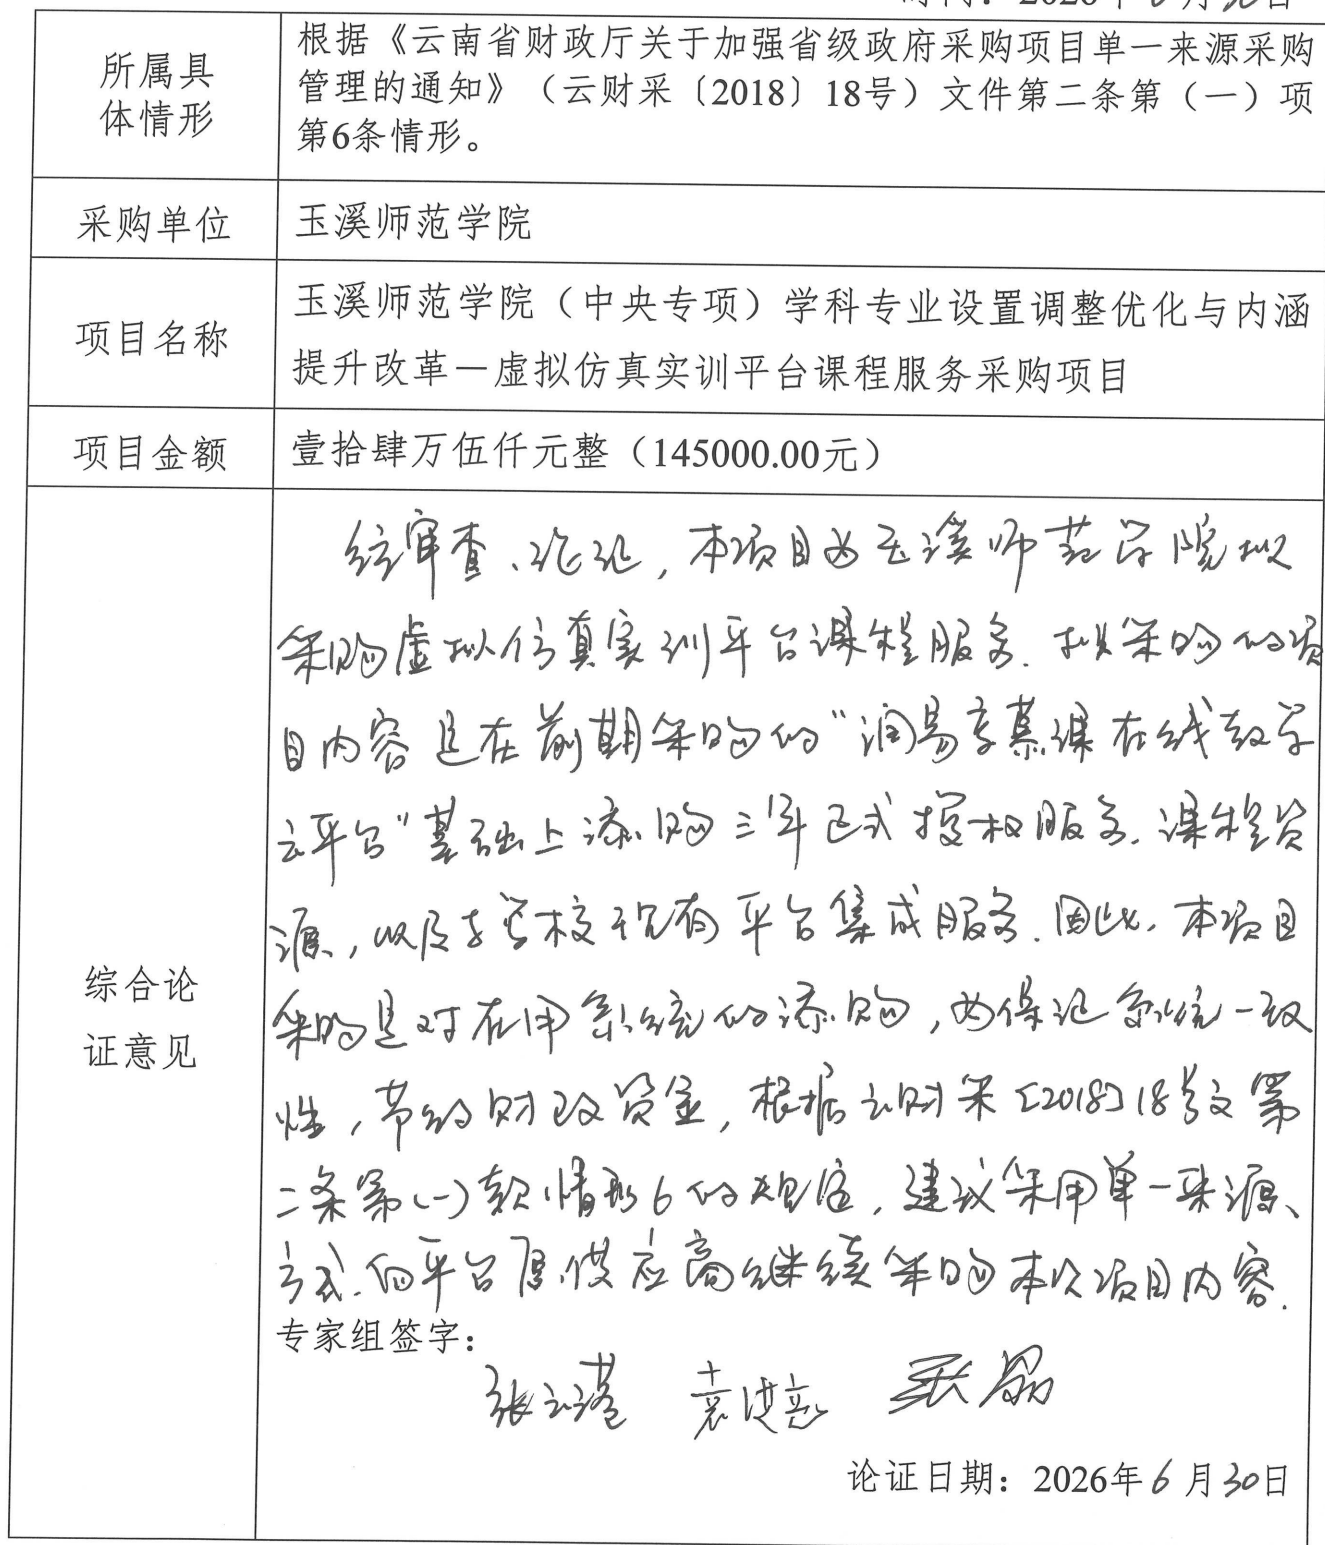 时间：2026年6月30日
所属具
体情形
根据《云南省财政厅关于加强省级政府采购项目单一来源采购
管理的通知》（云财采〔2018〕18号）文件第二条第（一）项
第6条情形。
采购单位
玉溪师范学院
项目名称
玉溪师范学院（中央专项）学科专业设置调整优化与内涵
提升改革—虚拟仿真实训平台课程服务采购项目
项目金额
壹拾肆万伍仟元整（145000.00元）
综合论
证意见
经审查、论证，本项目为玉溪师范学院拟
采购虚拟仿真实训平台课程服务. 拟采购的项
目内容是在前期采购的“润易享慕课在线教学
云平台”基础上添购三年正式授权服务. 课程资
源，以及与学校现有平台集成服务. 因此, 本项目
采购是对在用系统的添购，为保证系统一致
性，节约财政资金，根据云财采〔2018〕18号文第
二条第(一)款情形6的规定，建议采用单一来源
方式. 向平台原供应商继续采购本次项目内容.
专家组签字：
论证日期：2026年6月30日